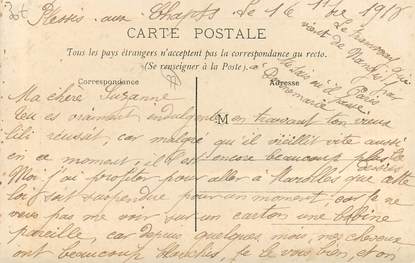 Plessis aux Chapts. Le 16 1918
Le tramway qui
vient de Nangis
CARTE POSTALE
Tous les pays étrangers n'acceptent pas la correspondance au recto.
(Se renseigner à la Poste)
Correspondance
Adresse
Ma chère Suzanne
Tu es vraiment indulgente en trouvant ton vieux
lili réussit, car malgré qu'il vieillit vite aussi
en ce moment, il est encore beaucoup plus
Moi j'ai profiter pour aller à Marolles que cette
loi soit suspendue pour un moment, car je ne
veux pas me voir sur un carton une bobine
pareille, car depuis quelques mois, mes cheveux
ont beaucoup blanchis, je le vois bien, et on